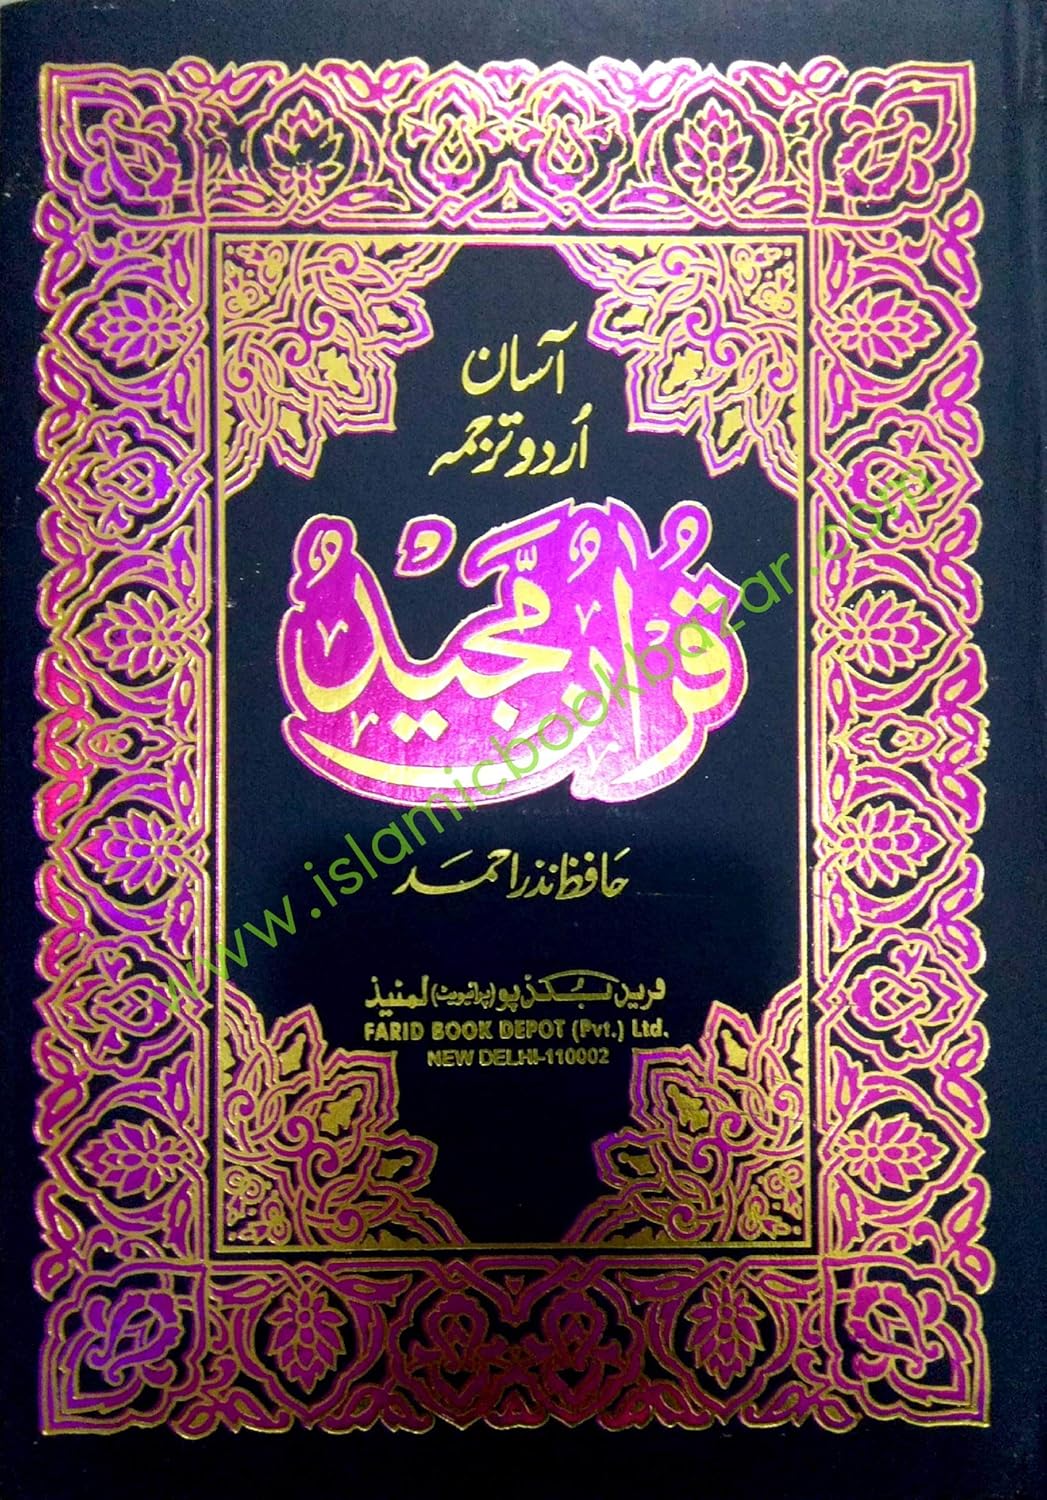 آسان
اُردو ترجمہ
قُرآن مَّجِيْدٌ
حافظ نذر احمد
فرید بکڈپو (پرائیویٹ) لمٹیڈ
FARID BOOK DEPOT (Pvt.) Ltd.
NEW DELHI-110002
www.islamicbookbazar.com